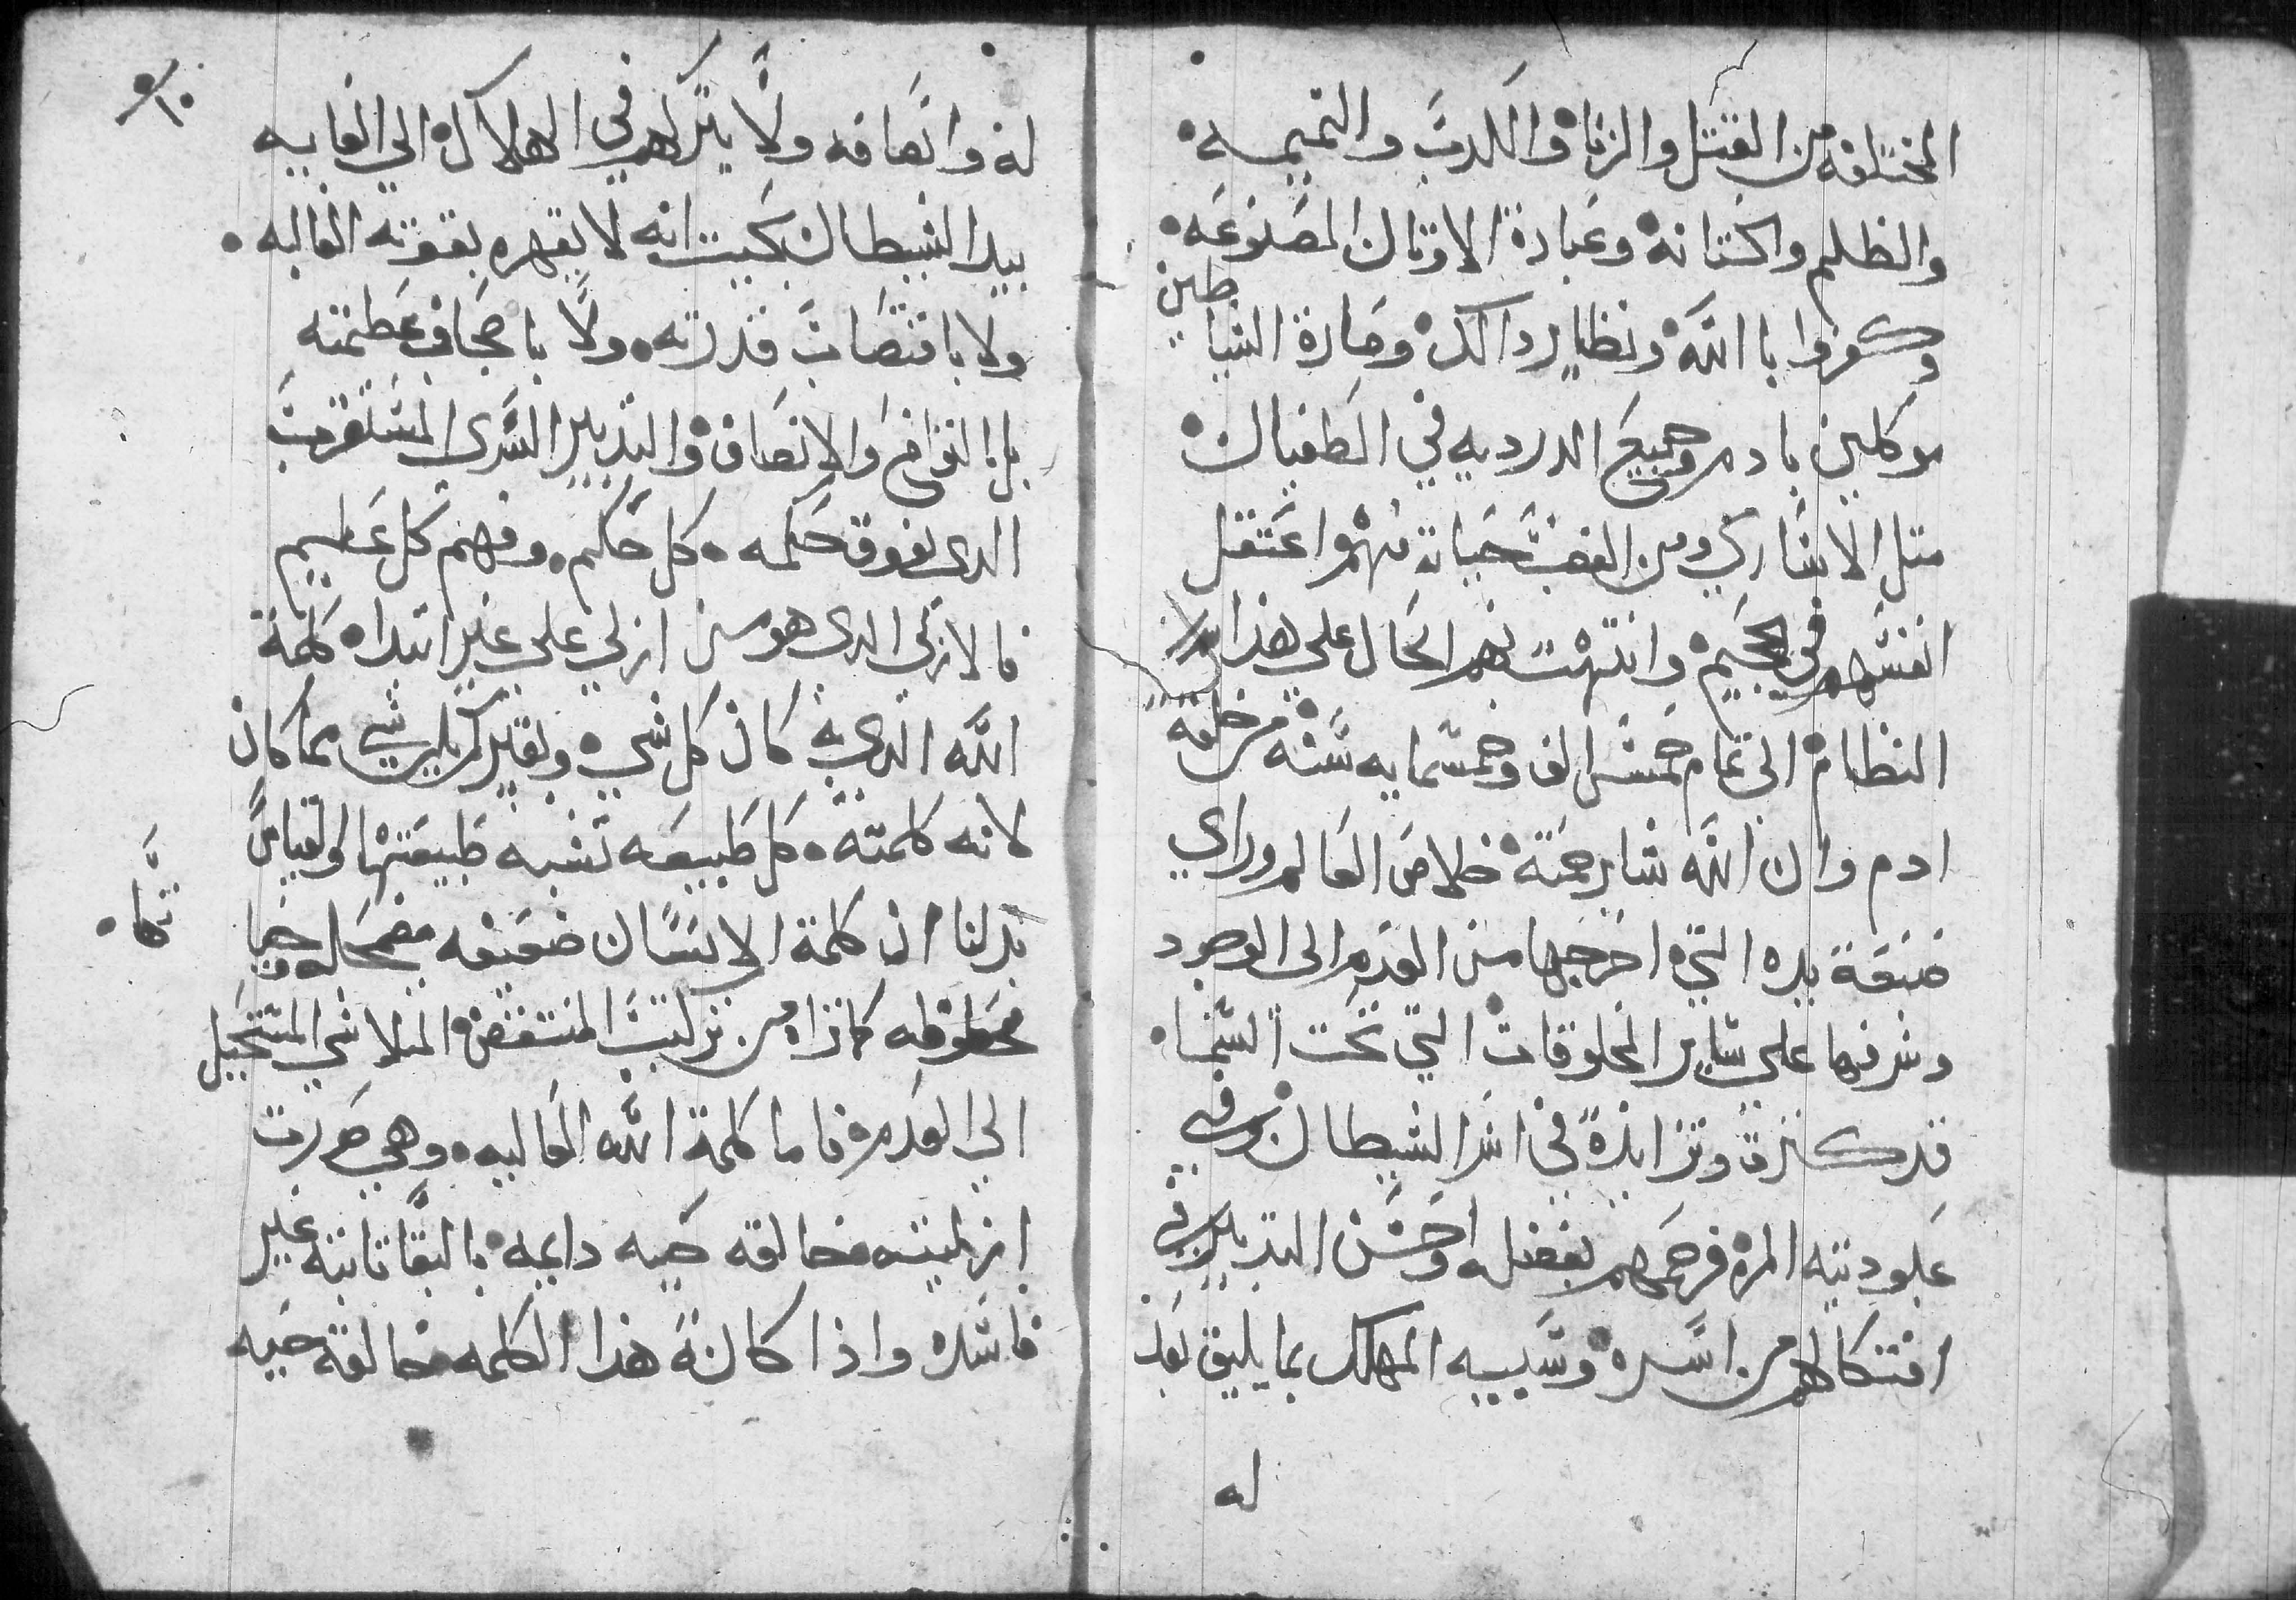 المختلفه من القتل والزناه والكدب والنميمه
والظلم واكتانه وعبادة الاوتان المصنوعه
وكفروا با الله ونظاير دالك وصارة الشيا
طين
موكلين بادم وجميع الدرديه في الطغيان
متل الاشاركي ومن الغضب حياته منهم واعتقل
انفسهم في الجحيم وانتهت بهم الحال علي هذا
النظام الى تمام خمسة الف وخمسمايه سنه من خلقة
ادم وان الله شا برحمته خلاص العالم وراي
صنعة يده التي اخرجها من العدم الى الوجود
وشرفها علي ساير المخلوقات التي تحت السماه
قد كترة وتزايدة في اسر الشيطان وفي
عبوديته المره فرحمهم بفضله واحسن التدبير في
افتكاكهم من اسره وسبيه المهلك بما يليق بعد
له
له وانصافه ولا يتركهم في الهلاك الي الغايه
بيد الشيطان بحيت انه لا يقهره بقوته الغالبه
ولا باقتصاب قدرته ولا باجحاف عظمته
بل بالتواضع والانصاف والتدبير السري المستغرب
الدي يفوق حكمه كل حكيم وفهم كل عليم
فالازلي الدي هو من ازلي علي غير ابتداه كلمة
الله الذي به كان كل شي وبغيره لم يكن شي مما كان
لانه كلمته كل طبيعه تشبه طبيعتها والقياس
يدلنا ان كلمة الانسان ضعيفه مضمحله وحيا
تها
مخلوطه كاتراه من تركيب المنتقض المتلاشي المستحيل
الي العدم فاما كلمة الله العاليه وهي صورت
ازليته خالقه حيه دايمه بالبقا تابته غير
فاسده واذا كانة هذا الكلمه خالقة حيه